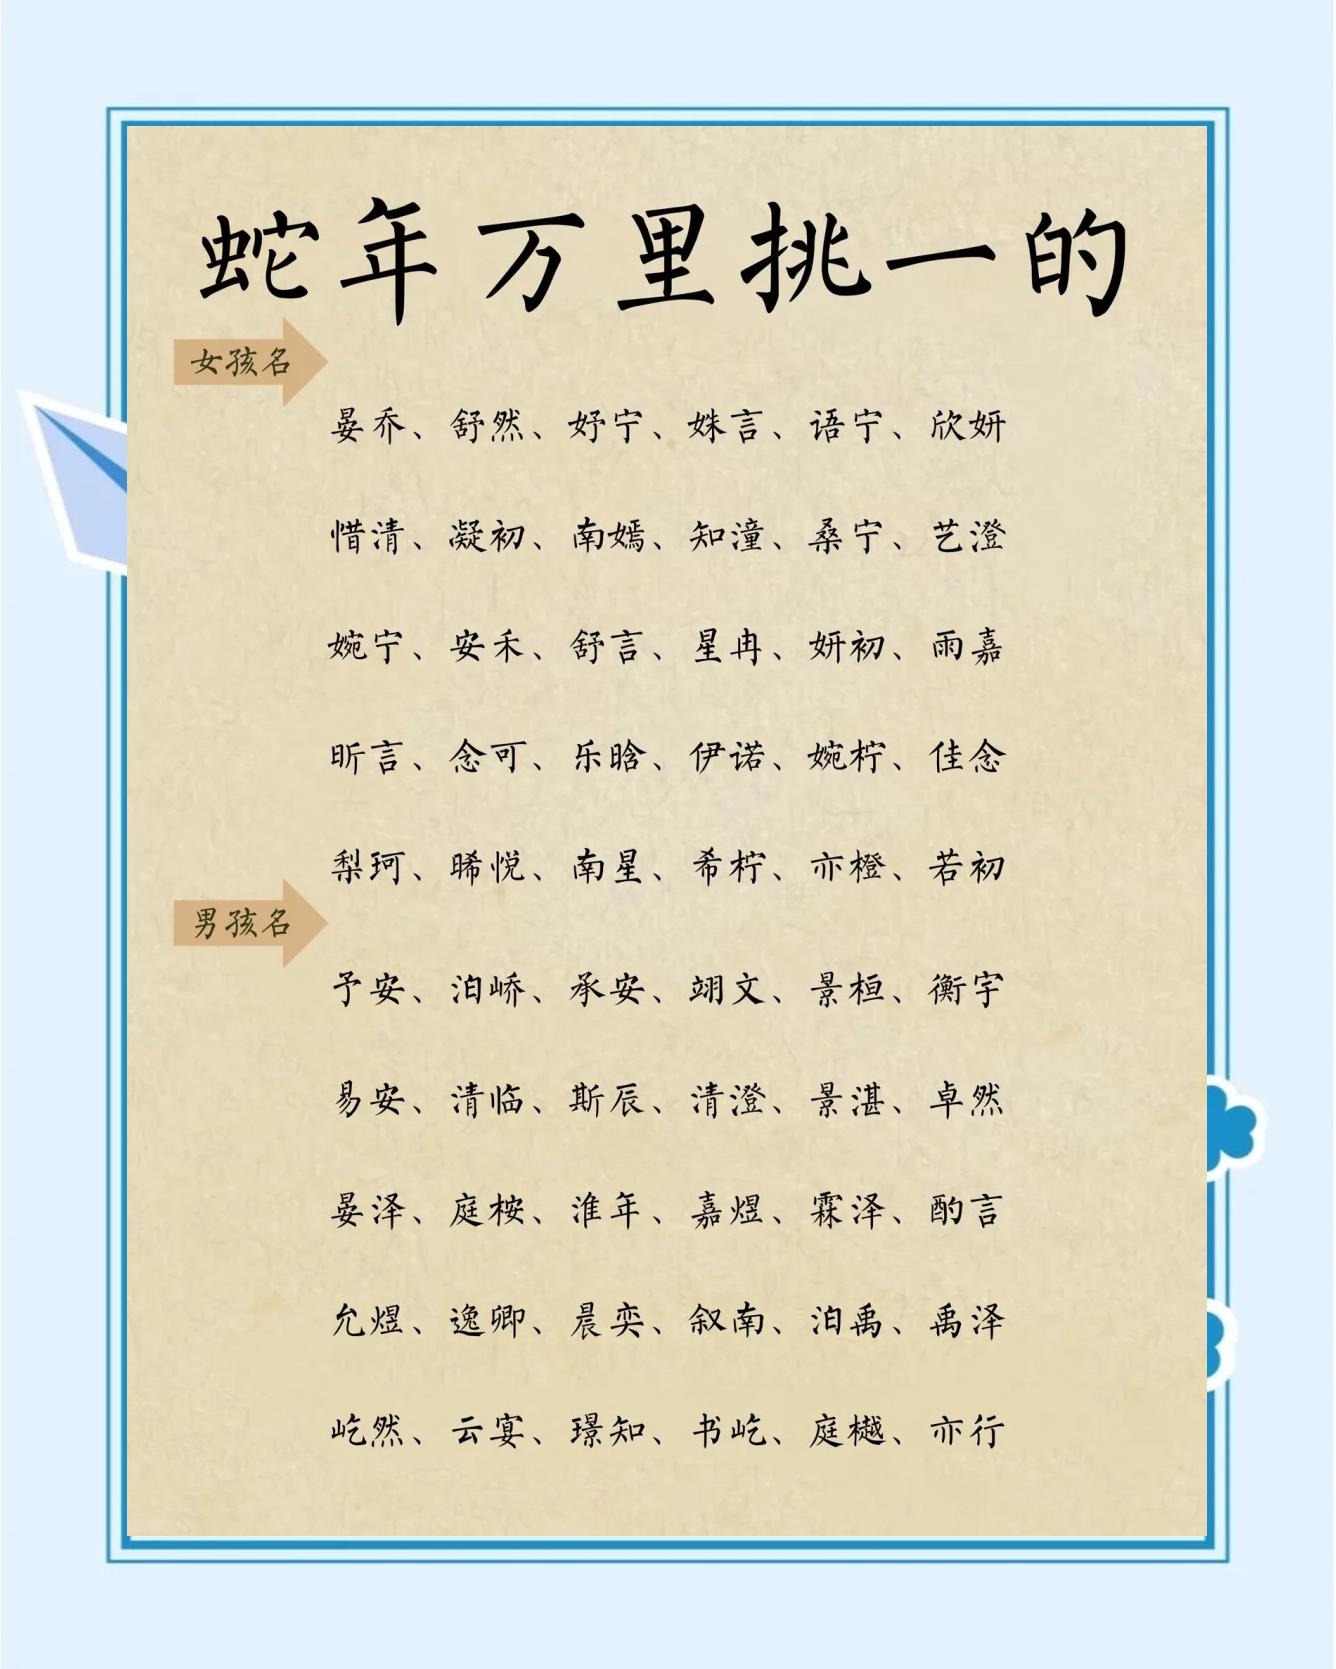 蛇年万里挑一的
女孩名
晏乔、舒然、妤宁、姝言、语宁、欣妍
惜清、凝初、南嫣、知潼、桑宁、艺澄
婉宁、安禾、舒言、星冉、妍初、雨嘉
昕言、念可、乐晗、伊诺、婉柠、佳念
梨珂、晞悦、南星、希柠、亦橙、若初
男孩名
予安、泊峤、承安、翊文、景桓、衡宇
易安、清临、斯辰、清澄、景湛、卓然
晏泽、庭桉、淮年、嘉煜、霖泽、酌言
允煜、逸卿、晨奕、叙南、泊禹、禹泽
屹然、云宴、璟知、书屹、庭樾、亦行